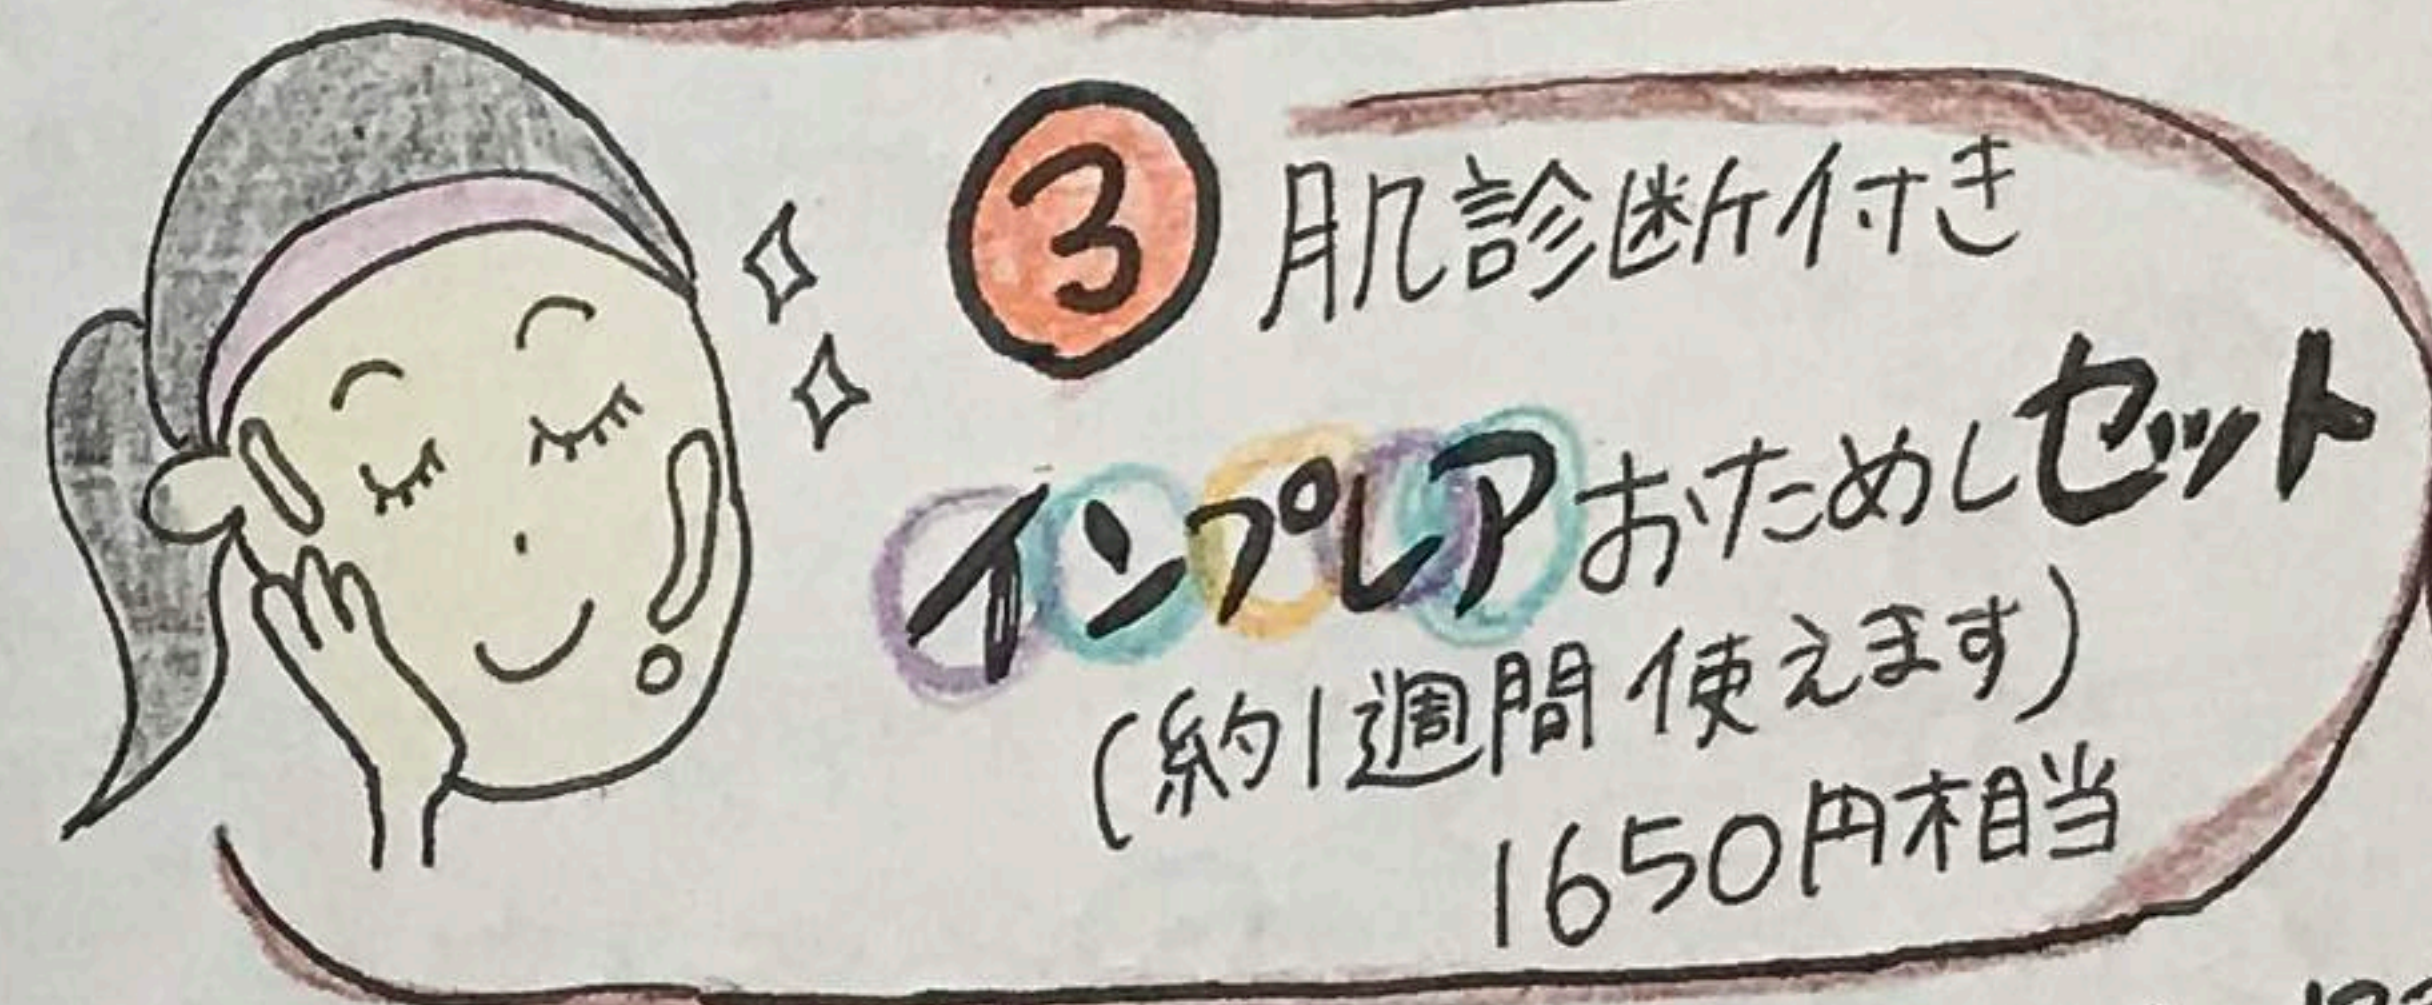 ③ 肌診断付き
インプレアおためしセット
(約1週間使えます)
1650円相当